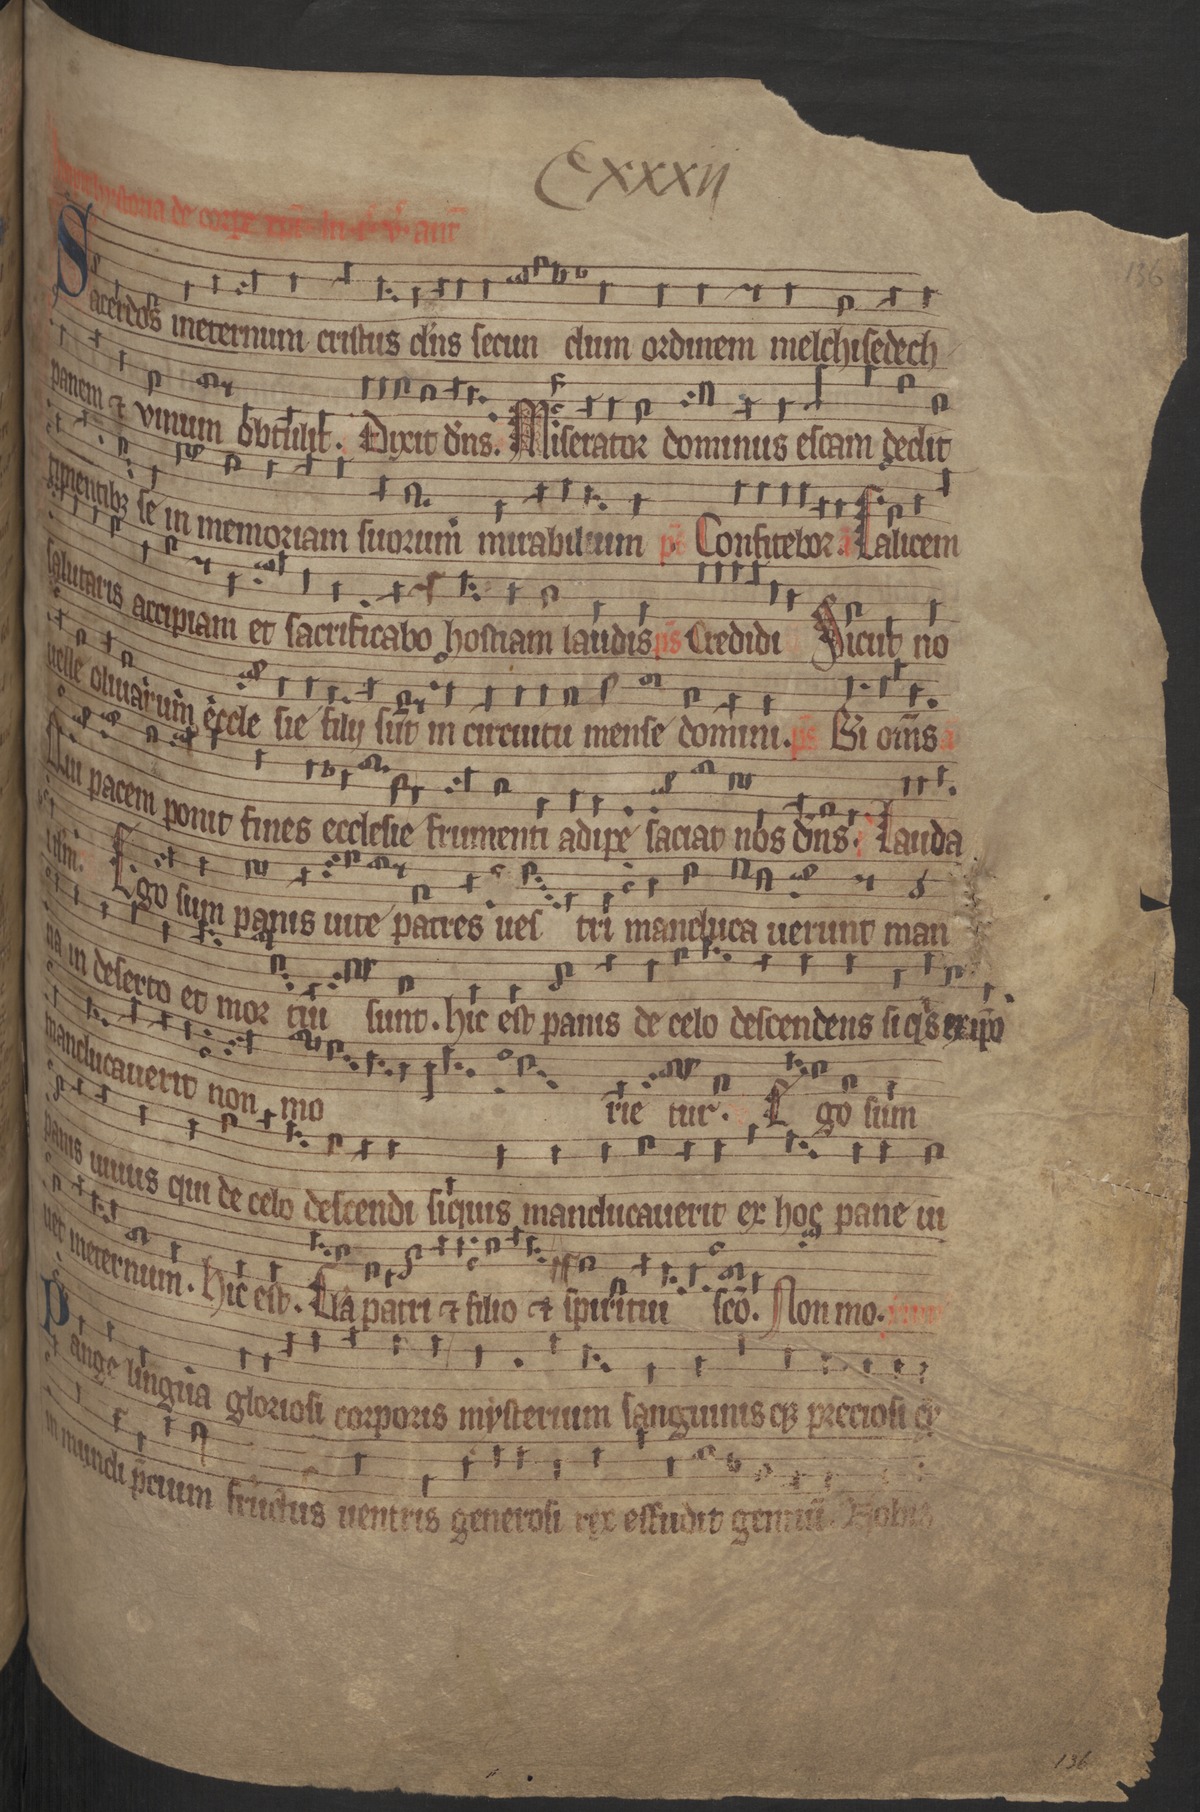 Cxxxij
136
hystoria de corpe xpi in i v ant
Sacerdos ineternum cristus dns secun dum ordinem melchisedech
panem et vinum obtulit. Dixit dns. Miserator dominus escam dedit
timentibz se in memoriam suorum mirabilium ps Confitebor. a Calicem
salutaris accipiam et sacrificabo hostiam laudis ps Credidi Sicut no
uelle oliuarum eccle sie filij sut in circuitu mense domini. ps Bi oms a
Qui pacem ponit fines ecclesie frumenti adipe saciat nos dns. Lauda
Ego sum panis uite patres ues tri manduca uerunt man
na in deserto et mor tui sunt. hic est panis de celo descendens si qs ex ipo
manducauerit non mo rie tur. Ego sum
panis uiuus qui de celo descendi siquis manducauerit ex hoc pane ui
uet ineternum. hic est. Gla patri et filio et spiritui sco. Non mo.
Pange lingua gloriosi corporis mysterium sanguinis qz preciosi q
in mundi pcium fructus uentris generosi rex effudit gentiu. Nobis
136